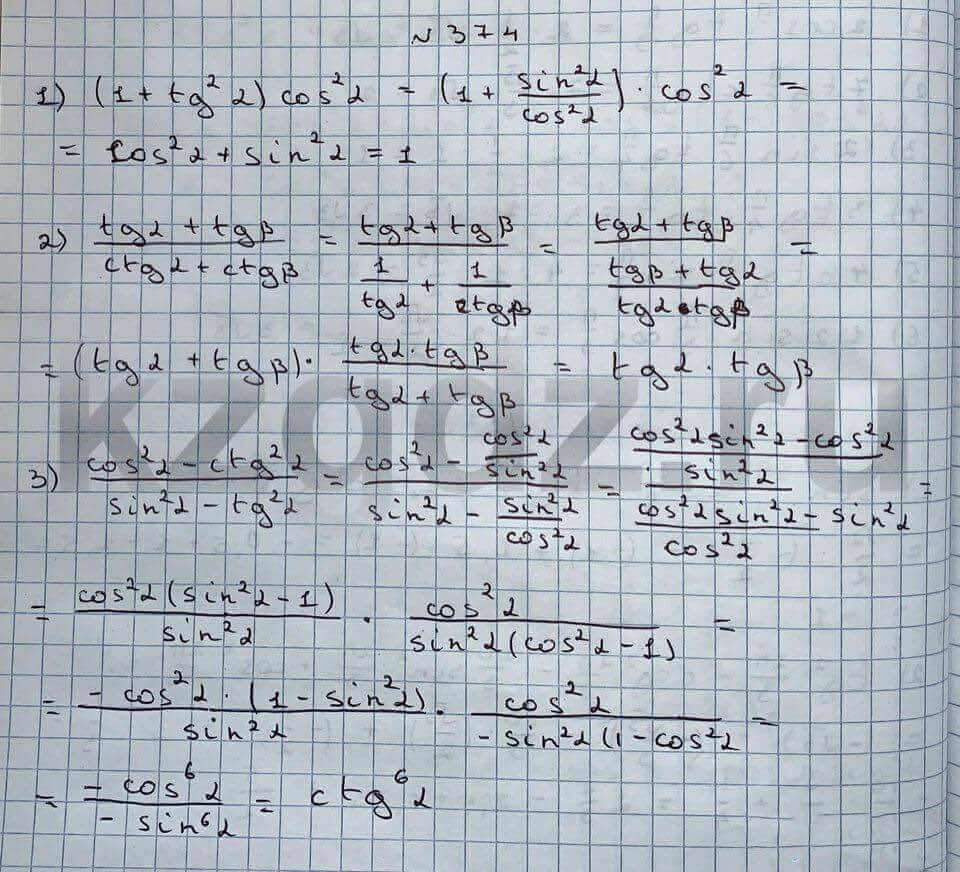 № 374
1) (1 + tg²α) cos²α = (1 + sin²α/cos²α) · cos²α =
= cos²α + sin²α = 1
2) (tgα + tgβ)/(ctgα + ctgβ) = (tgα + tgβ)/(1/tgα + 1/tgβ) = (tgα + tgβ)/((tgβ + tgα)/(tgα · tgβ)) =
= (tgα + tgβ) · (tgα · tgβ)/(tgα + tgβ) = tgα · tgβ
3) (cos²α − ctg²α)/(sin²α − tg²α) = (cos²α − cos²α/sin²α)/(sin²α − sin²α/cos²α) = ((cos²α sin²α − cos²α)/sin²α)/((cos²α sin²α − sin²α)/cos²α) =
= (cos²α (sin²α − 1))/sin²α · cos²α/(sin²α (cos²α − 1)) =
= (−cos²α · (1 − sin²α))/sin²α · cos²α/(−sin²α (1 − cos²α =
= (−cos⁶α)/(−sin⁶α) = ctg⁶α
kzgdz.ru